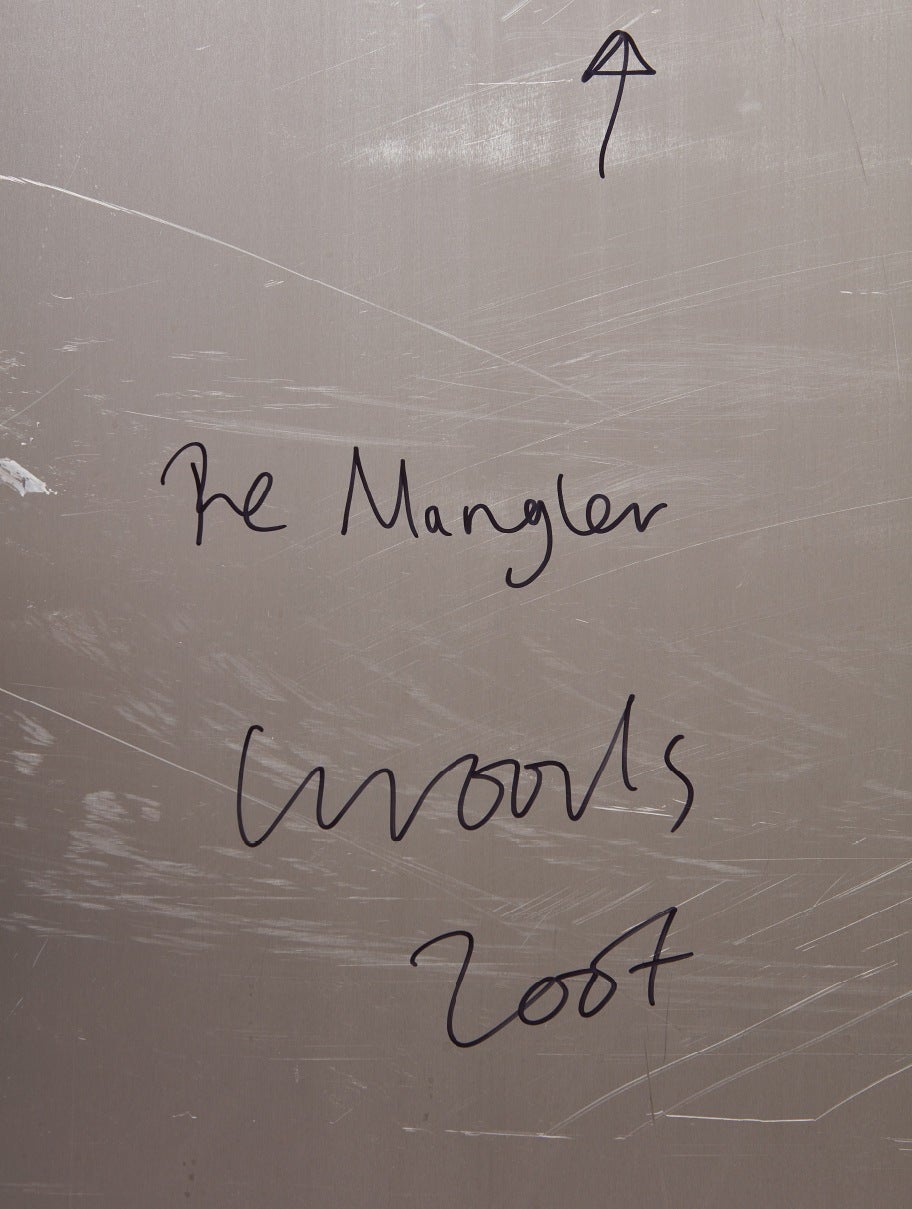 The Mangler
Woods
2007